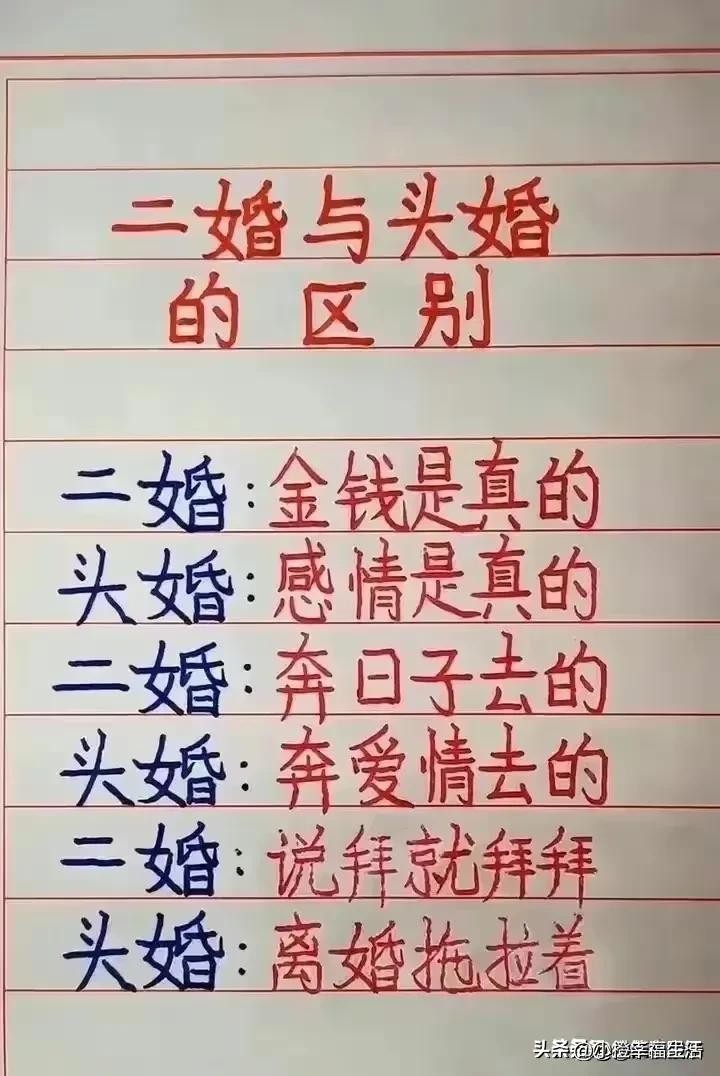 二婚与头婚
的区别
二婚:金钱是真的
头婚:感情是真的
二婚:奔日子去的
头婚:奔爱情去的
二婚:说拜就拜拜
头婚:离婚拖拉着
头条 @小橙幸福生活